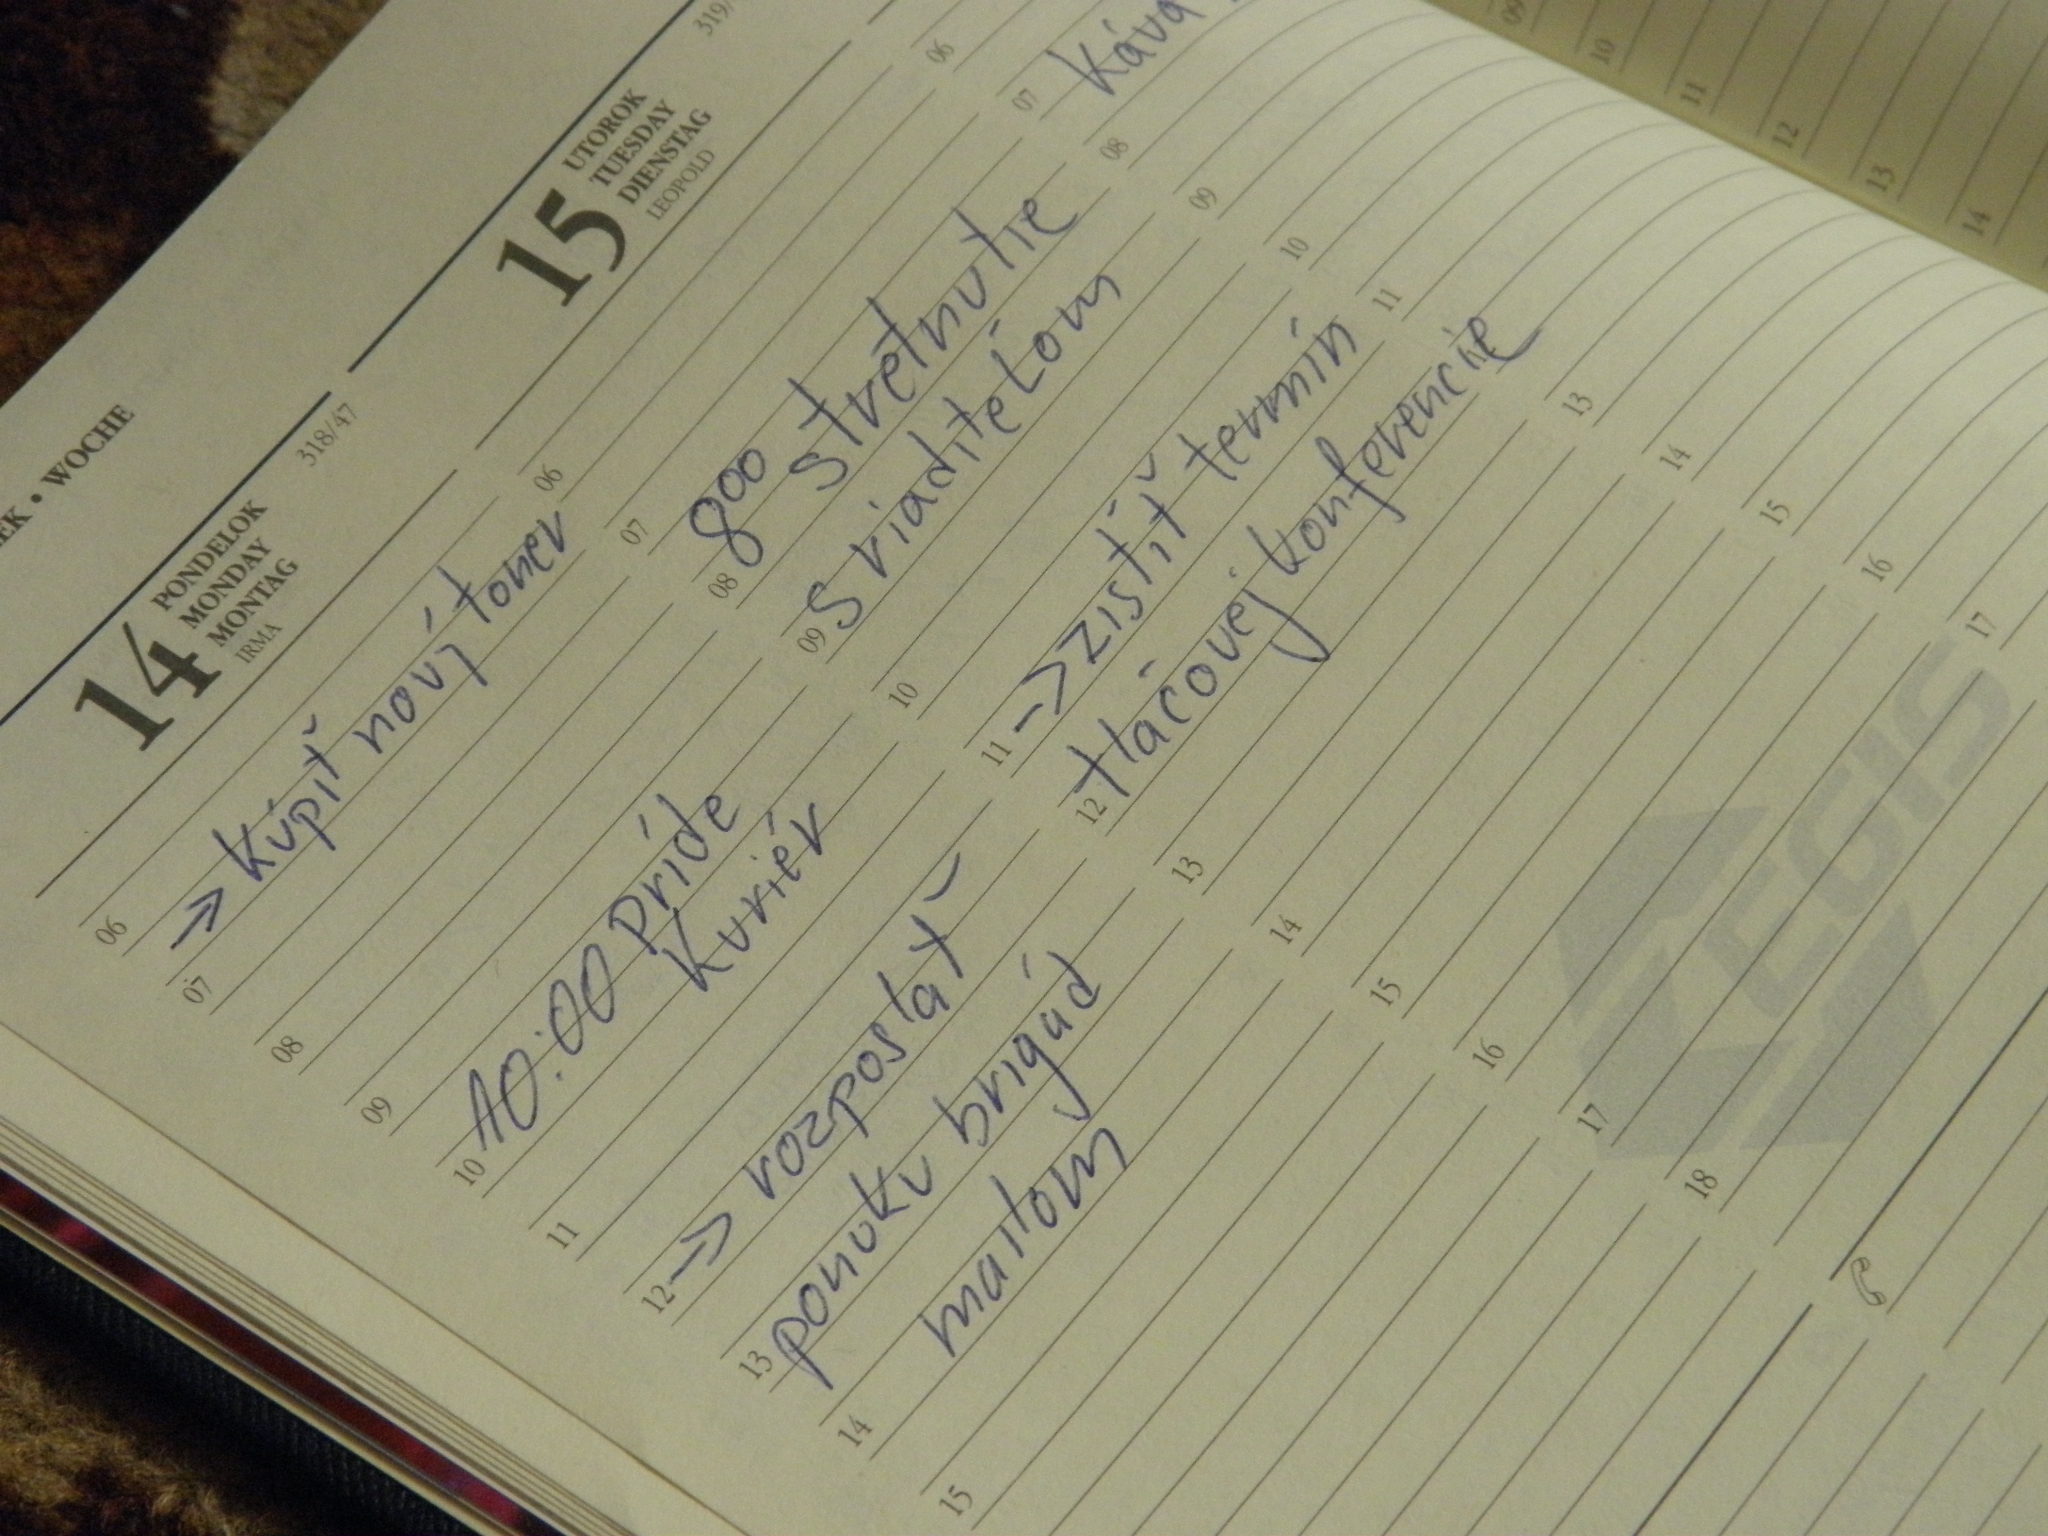 EK • WOCHE
14
PONDELOK
MONDAY
MONTAG
IRMA
318/47
06
→ Kúpiť nový toner
07
08
09
10:00 príde
10
Kuriér
11
12 → rozposlať
13 ponuku brigád
14 mailom
15
15
UTOROK
TUESDAY
DIENSTAG
LEOPOLD
319/
06
07
8 00 stretnutie
08
09 s riaditeľom
10
11 → zistiť termín
12 tlačovej konferencie
13
14
15
16
17
18
06
07 Káva
08
09
10
11
13
14
15
16
17
EGIS
09
10
11
12
13
14